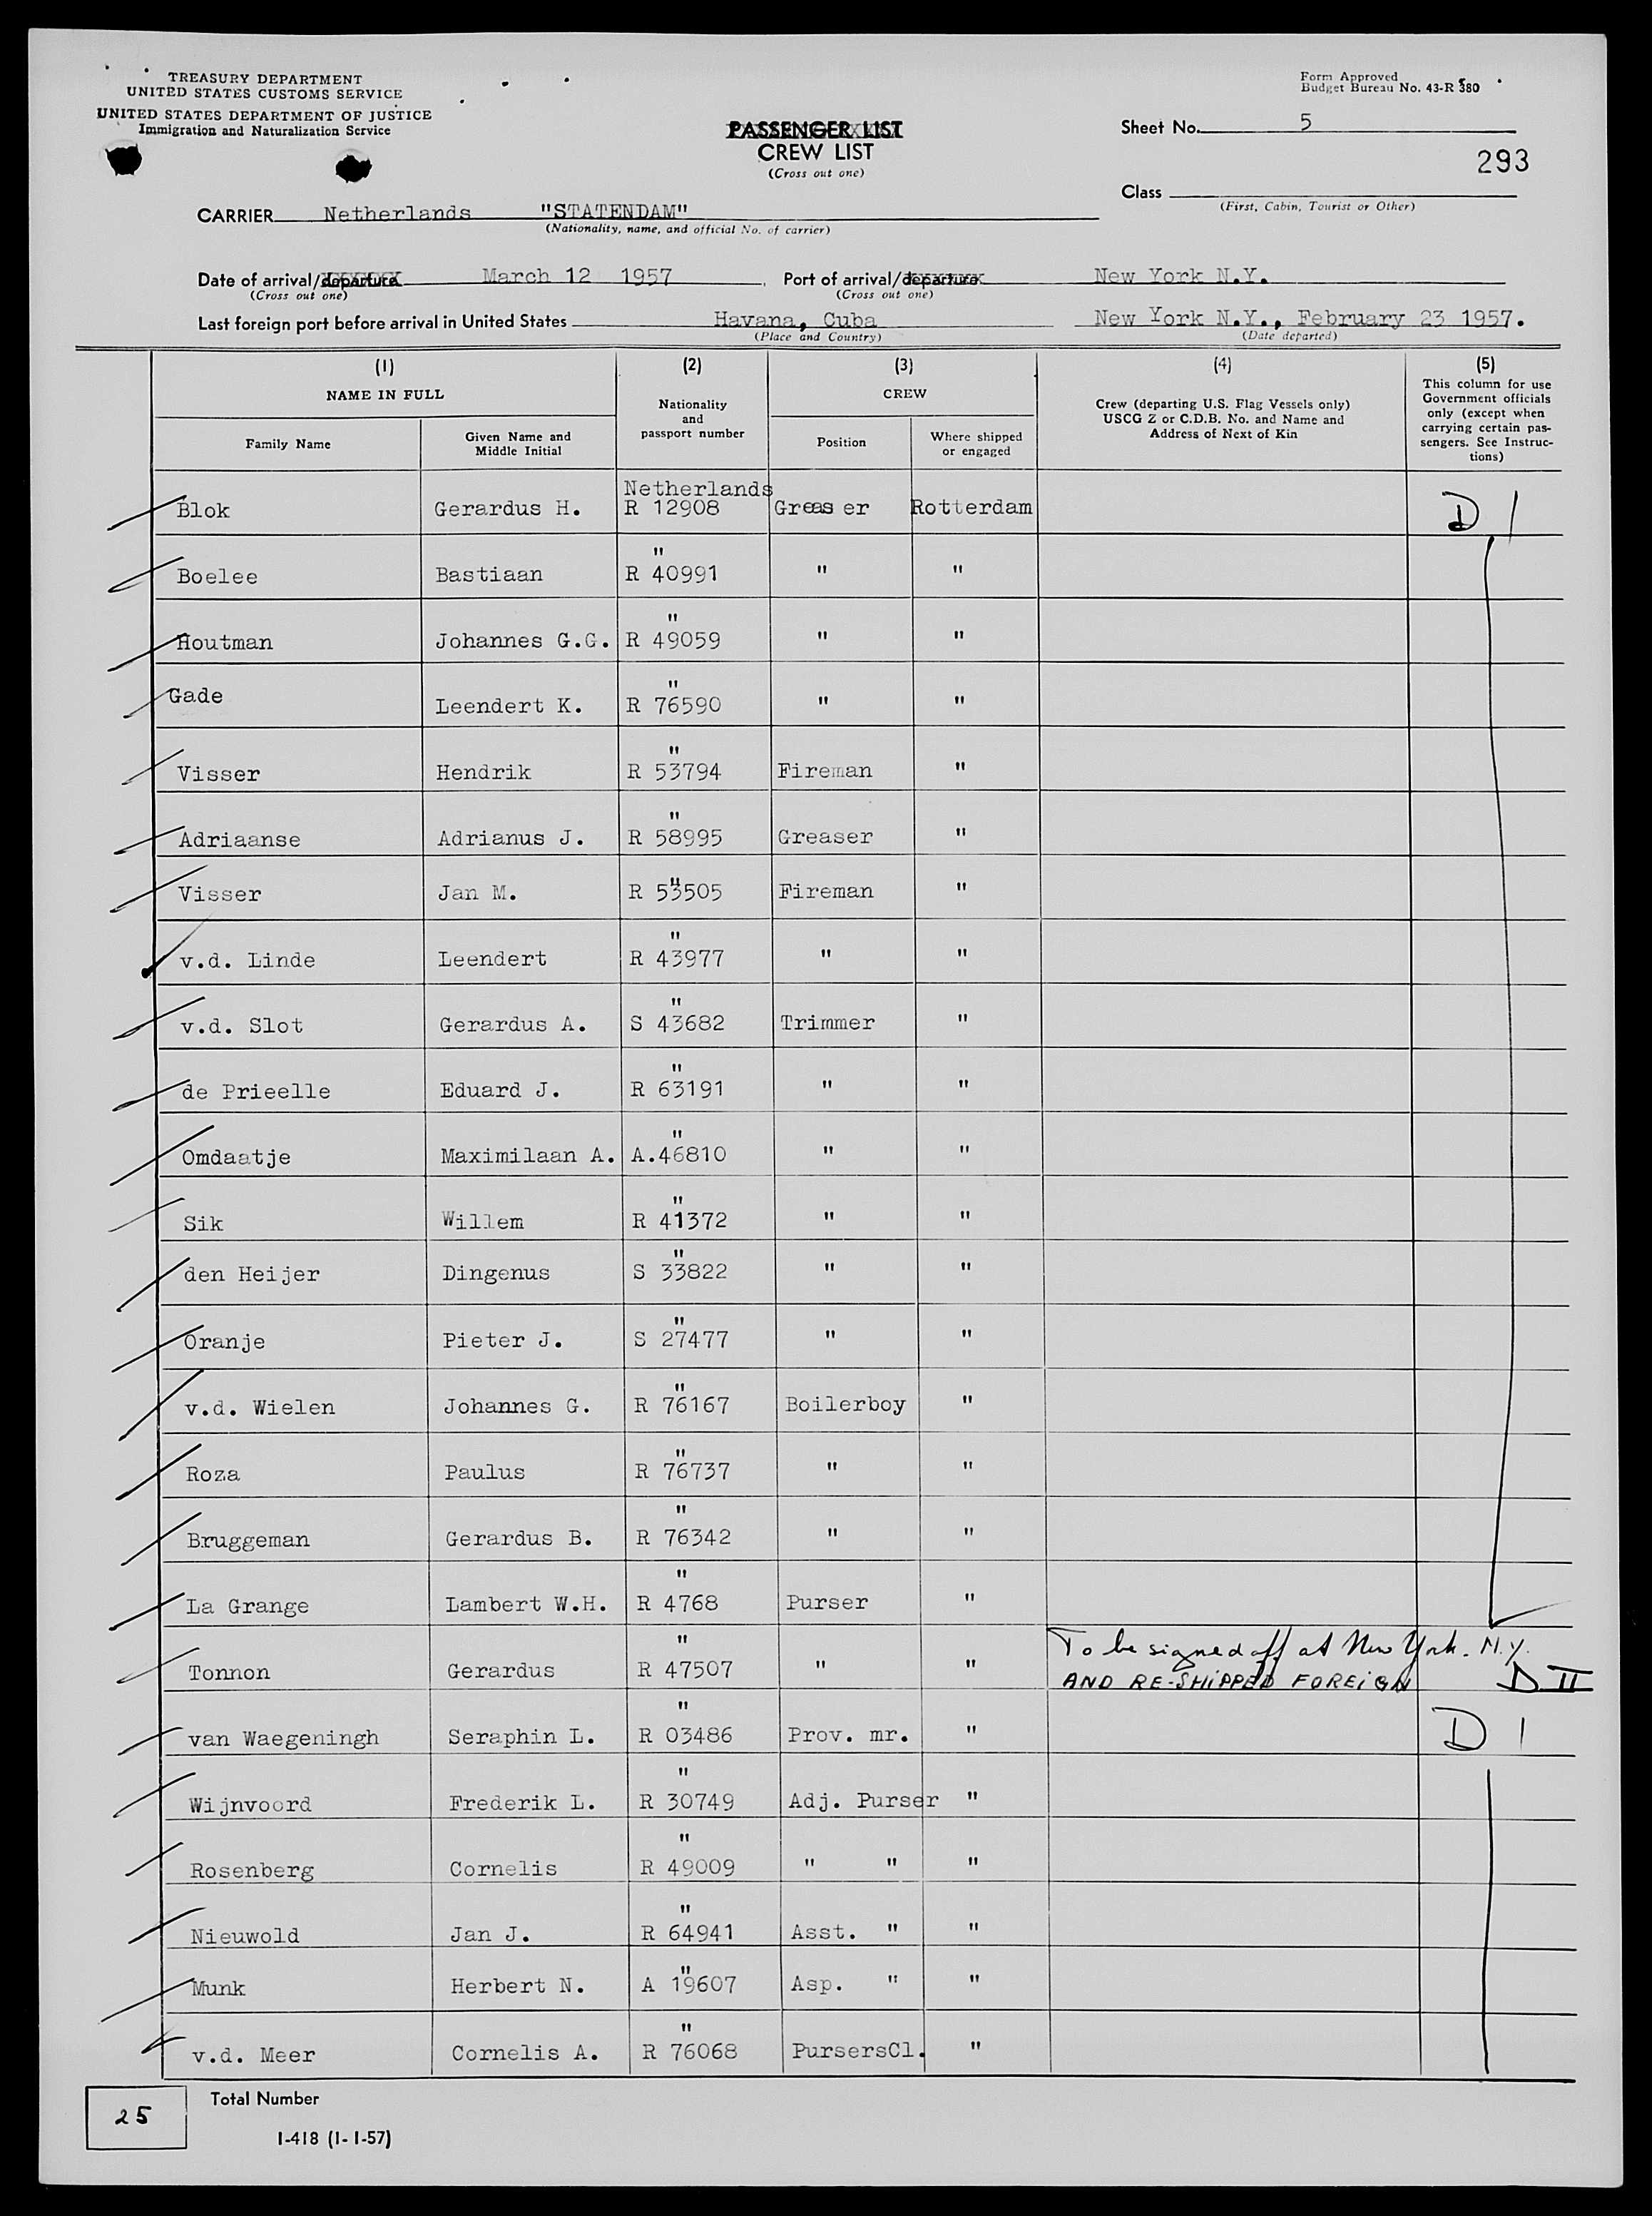 TREASURY DEPARTMENT
UNITED STATES CUSTOMS SERVICE
UNITED STATES DEPARTMENT OF JUSTICE
Immigration and Naturalization Service
Form Approved
Budget Bureau No. 43-R 380
PASSENGER LIST
CREW LIST
(Cross out one)
Sheet No. 5
293
Class
(First, Cabin, Tourist or Other)
CARRIER Netherlands "STATENDAM"
(Nationality, name, and official No. of carrier)
Date of arrival/departure March 12 1957 Port of arrival/departure New York N.Y.
(Cross out one) (Cross out one)
Last foreign port before arrival in United States Havana, Cuba New York N.Y., February 23 1957.
(Place and Country) (Date departed)
(1) (2) (3) (4) (5)
NAME IN FULL
Family Name
Given Name and
Middle Initial
Nationality
and
passport number
CREW
Position
Where shipped
or engaged
Crew (departing U.S. Flag Vessels only)
USCG Z or C.D.B. No. and Name and
Address of Next of Kin
This column for use
Government officials
only (except when
carrying certain pas-
sengers. See Instruc-
tions)
Netherlands
Blok Gerardus H. R 12908 Greaser Rotterdam D 1
"
Boelee Bastiaan R 40991 " "
"
Houtman Johannes G.G. R 49059 " "
"
Gade Leendert K. R 76590 " "
"
Visser Hendrik R 53794 Fireman "
"
Adriaanse Adrianus J. R 58995 Greaser "
"
Visser Jan M. R 53505 Fireman "
"
v.d. Linde Leendert R 43977 " "
"
v.d. Slot Gerardus A. S 43682 Trimmer "
"
de Prieelle Eduard J. R 63191 " "
"
Omdaatje Maximilaan A. A.46810 " "
"
Sik Willem R 41372 " "
"
den Heijer Dingenus S 33822 " "
"
Oranje Pieter J. S 27477 " "
"
v.d. Wielen Johannes G. R 76167 Boilerboy "
"
Roza Paulus R 76737 " "
"
Bruggeman Gerardus B. R 76342 " "
"
La Grange Lambert W.H. R 4768 Purser "
" To be signed off at New York. N.Y.
Tonnon Gerardus R 47507 " " AND RE-SHIPPED FOREIGN D II
"
van Waegeningh Seraphin L. R 03486 Prov. mr. " D 1
"
Wijnvoord Frederik L. R 30749 Adj. Purser "
"
Rosenberg Cornelis R 49009 " " "
"
Nieuwold Jan J. R 64941 Asst. " "
"
Munk Herbert N. A 19607 Asp. " "
"
v.d. Meer Cornelis A. R 76068 PursersCl. "
25 Total Number
I-418 (1-1-57)